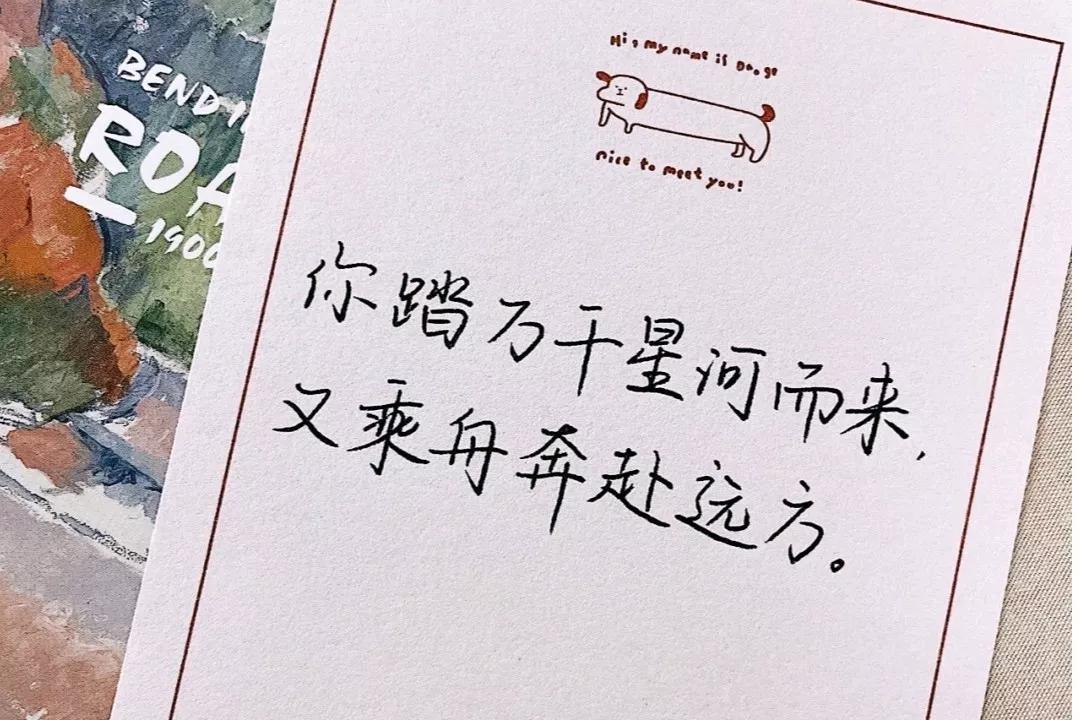 BEND I
ROA
1900
Hi, my name is Dooge
nice to meet you!
你踏万千星河而来,
又乘舟奔赴远方。